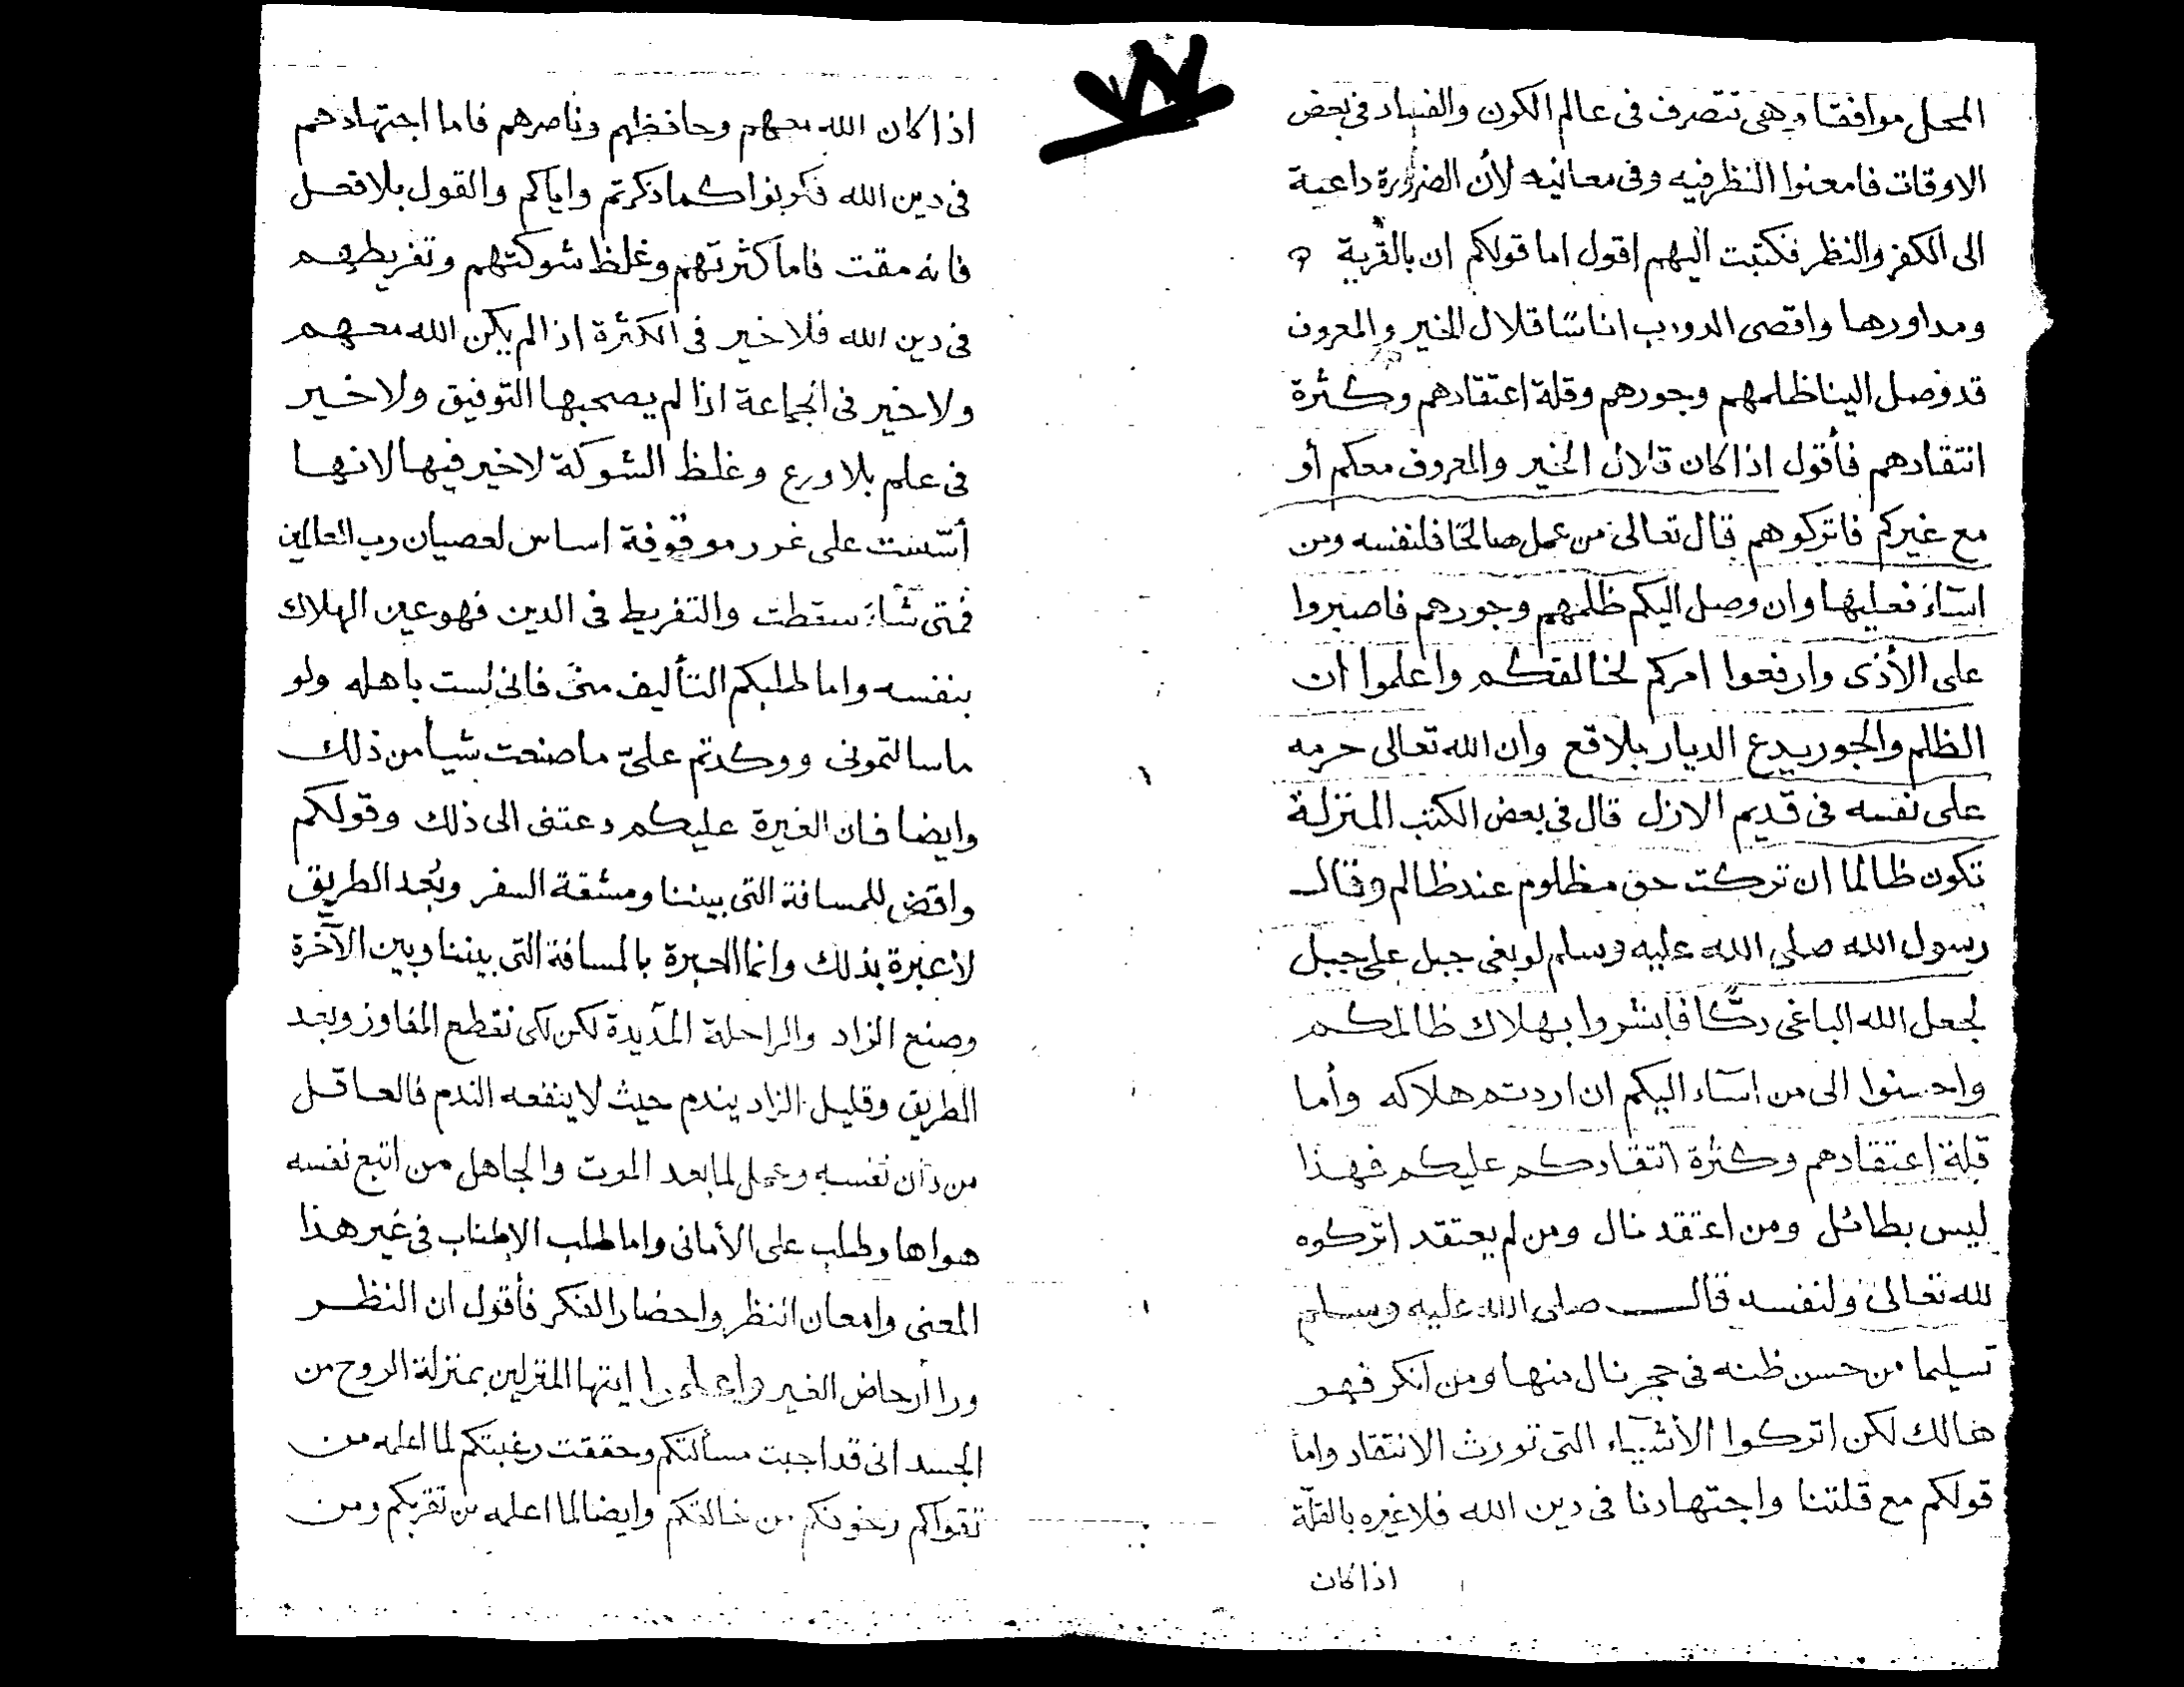 المحل موافقا وهى تتصرف فى عالم الكون والفساد فى بعض
الاوقات فامعنوا النظر فيه وفى معانيه لأن الضرورة داعية
الى الكفر والنظر فكتبت اليهم اقول اما قولكم ان بالقرية
ومداورها واقصى الدورب اناسًا قلال الخير والمعروف
قد وصل الينا ظلمهم وجورهم وقلة اعتقادهم وكثرة
انتقادهم فأقول اذا كان قلال الخير والمعروف معكم أو
مع غيركم فاتركوهم قال تعالى من عمل صالحًا فلنفسه ومن
اسآء فعليها وان وصل اليكم ظلمهم وجورهم فاصبروا
على الأذى وارفعوا امركم لخالقكم واعلموا ان
الظلم والجور يدع الديار بلاقع وان الله تعالى حرمه
على نفسه فى قديم الازل قال فى بعض الكتب المنزلة
تكون ظالما ان تركت حق مظلوم عند ظالم وقال
رسول الله صلى الله عليه وسلم لو بغى جبل على جبل
لجعل الله الباغى دكًّا فابشروا بهلاك ظالمكم
واحسنوا الى من اسآء اليكم ان اردتم هلاكه وأما
قلة اعتقادهم وكثرة انتقادكم عليكم فهذا
ليس بطائل ومن اعتقد نال ومن لم يعتقد اتركوه
لله تعالى ولنفسه قال صلى الله عليه وسلم
تسليما من حسن ظنه فى حجر نال منها ومن انكر فهو
هالك لكن اتركوا الأشيآء التى تورث الانتقاد واما
قولكم مع قلتنا واجتهادنا فى دين الله فلا غيره بالقلّة
اذا كان
٧٧
اذا كان الله معهم وحافظهم وناصرهم فاما اجتهادهم
فى دين الله فكونوا كما ذكرتم واياكم والقول بلا فعل
فانه مقت فاما كثرتهم وغلظ شوكتهم وتفريطهم
فى دين الله فلا خير فى الكثرة اذا لم يكن الله معهم
ولا خير فى الجماعة اذا لم يصحبها التوفيق ولا خير
فى علم بلا ورع وغلظ الشوكة لا خير فيها لانها
أسّست على غرر موقوفة اساس لعصيان رب العالمين
فمتى شآء سقطت والتفريط فى الدين فهو عين الهلاك
بنفسه واما طلبكم التأليف منى فانى لست باهله ولو
ماسالتمونى ووكدتم علىّ ما صنعت شيأ من ذلك
وايضا فان الغيرة عليكم دعتنى الى ذلك وقولكم
واقض للمسافة التى بيننا ومشقة السفر وبُعد الطريق
لا عبرة بذلك وانما العبرة بالمسافة التى بيننا وبين الآخرة
وصنع الزاد والراحلة المديدة لكن لكى نقطع المفاوز وبعد
الطريق وقليل الزاد يندم حيث لا ينفعه الندم فالعاقل
من دان نفسه وعمل لما بعد الموت والجاهل من اتبع نفسه
هواها وطلب على الأمانى واما طلب الإطناب فى غير هذا
المعنى وامعان النظر واحضار الفكر فأقول ان النظر
ورا أرحاض الغير واعلموا ايتها المنزلين بمنزلة الروح من
الجسد انى قد اجبت مسألتكم وحققت رغبتكم لما اعلمه من
تقواكم وخوفكم من خالقكم وايضا لما اعلمه من تقربكم ومن